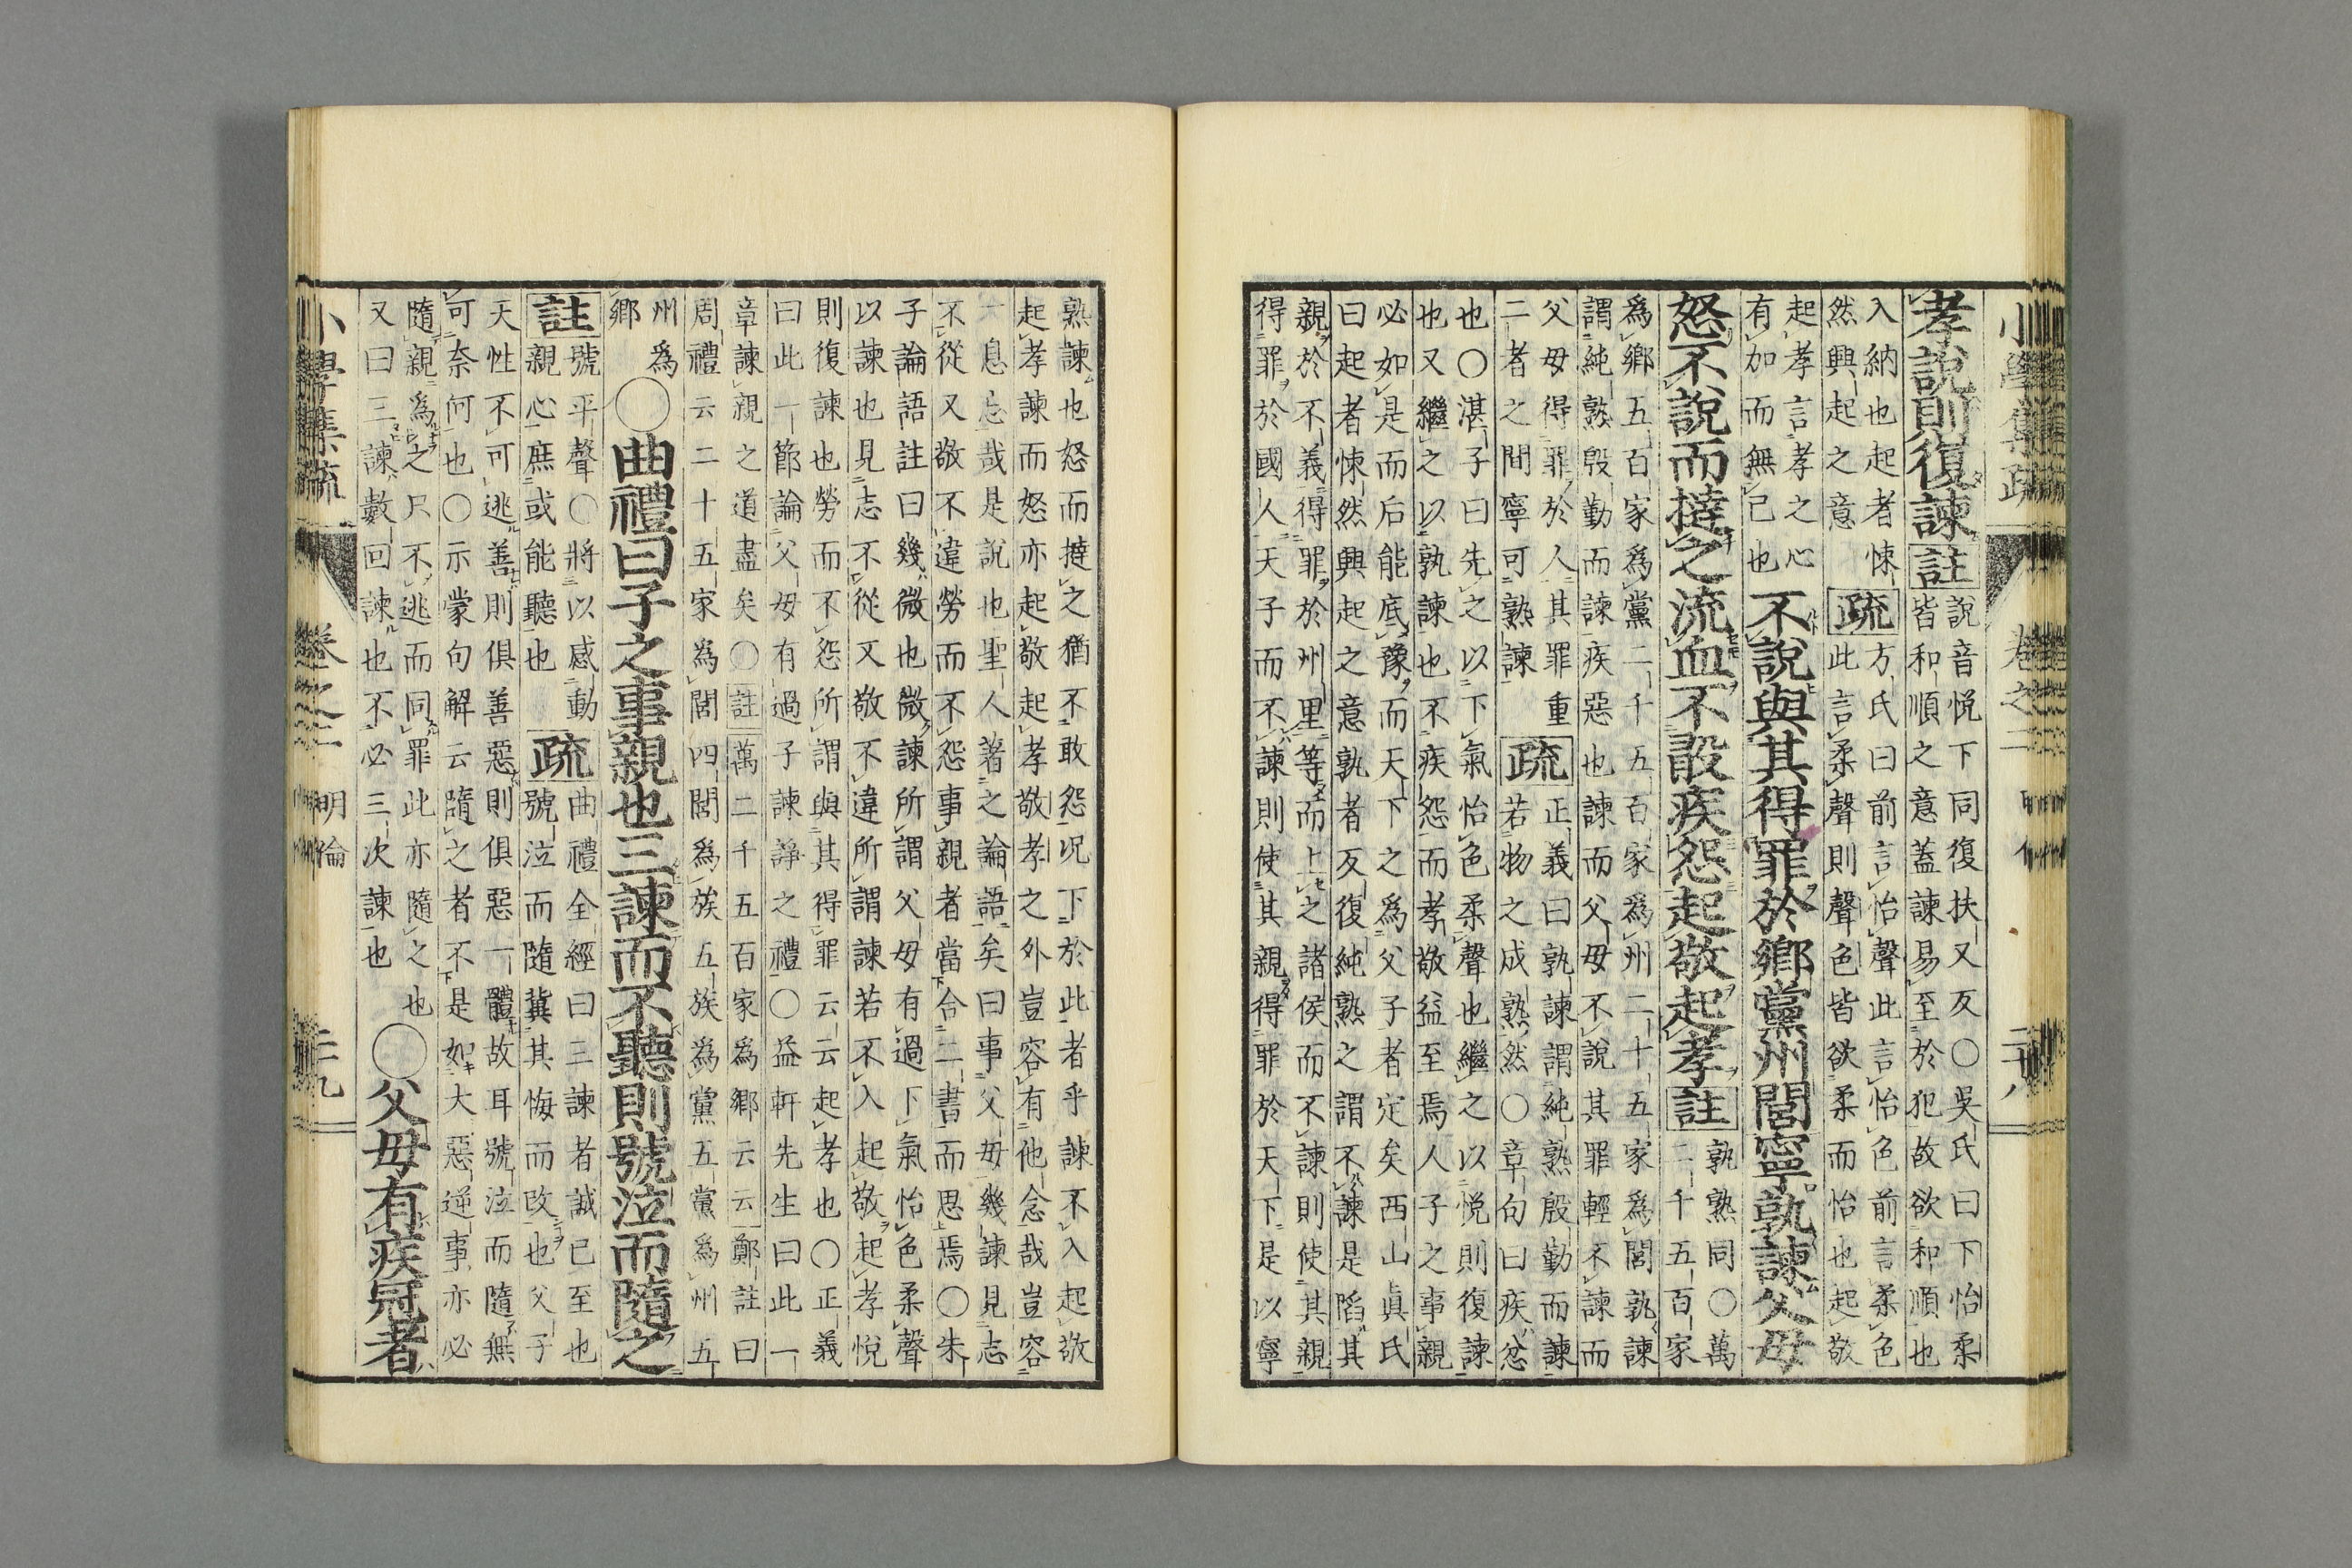 小學集疏 卷之二
孝說則復諫註說音悅下同復扶又反○吳氏曰下怡柔
皆和順之意蓋諫易至於犯故欲和順也
入納也起者悚
然興起之意疏方氏曰前言怡聲此言怡色前言柔色
此言柔聲則聲色皆欲柔而怡也起敬
起孝言孝之心
有加而無已也不說與其得罪於鄉黨州閭寧孰諫父母
怒不說而撻之流血不敢疾怨起敬起孝註孰熟同○萬
二千五百家
為鄉五百家為黨二千五百家為州二十五家為閭孰諫
謂純熟殷勤而諫疾惡也諫而父母不說其罪輕不諫而
父母得罪於人其罪重
二者之間寧可熟諫疏正義曰孰諫謂純熟殷勤而諫
若物之成熟然○章句曰疾忿
也○湛子曰先之以下氣怡色柔聲也繼之以悅則復諫
也又繼之以孰諫也不疾怨而孝敬益至焉人子之事親
必如是而后能底豫而天下之為父子者定矣西山眞氏
曰起者悚然興起之意孰者反復純熟之謂不諫是陷其
親於不義得罪於州里等而上之諸侯而不諫則使其親
得罪於國人天子而不諫則使其親得罪於天下是以寧
熟諫也怒而撻之猶不敢怨况下於此者乎諫不入起敬
起孝諫而怒亦起敬起孝敬孝之外豈容有他念哉豈容
息忘哉是說也聖人著之論語矣曰事父母幾諫見志
不從又敬不違勞而不怨事親者當合二書而思焉○朱
子論語註曰幾微也微諫所謂父母有過下氣怡色柔聲
以諫也見志不從又敬不違所謂諫若不入起敬起孝悅
則復諫也勞而不怨所謂與其得罪云云起孝也○正義
曰此一節論父母有過子諫諍之禮○益軒先生曰此一
章諫親之道盡矣○註萬二千五百家為鄉云云鄭註曰
周禮云二十五家為閭四閭為族五族為黨五黨為州五
州為
鄉○曲禮曰子之事親也三諫而不聽則號泣而隨之
註號平聲○將以感動
親心庶或能聽也疏曲禮全經曰三諫者誠已至也
號泣而隨冀其悔而改也父子
天性不可逃善則俱善惡則俱惡一體故耳號泣而隨無
可奈何也○示蒙句解云隨之者不是如大惡逆事亦必
隨親為之只不逃而同罪此亦隨之也
又曰三諫數回諫也不必三次諫也○父母有疾冠者
小學集疏 卷之二 明倫 二十九